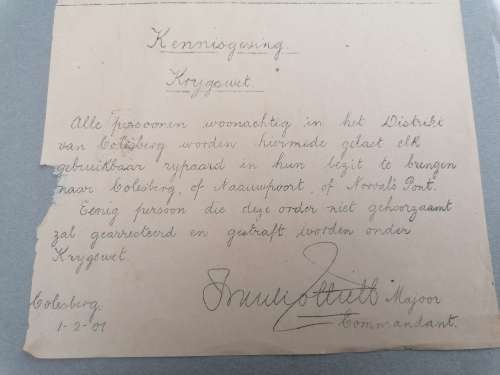 Kennisgeving.
Krygswet.
Alle persoonen woonachtig in het Distrikt
van Colesberg worden hiermide gelast elk
gebruikbaar rypaard in hun bezit te brengen
naar Colesberg, of Naauwpoort, of Norval's Pont.
Eenig persoon die deze order niet gehoorzaamt
zal gearresteerd en gestraft worden onder
Krygswet.
Majoor
Colesberg.
1-2-01
Commandant.